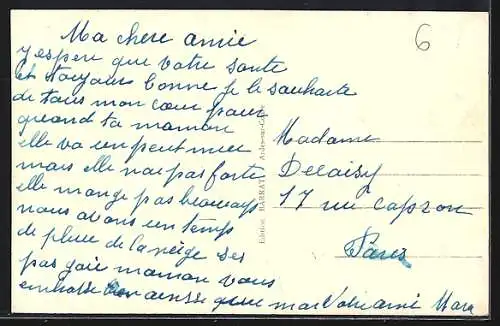 Ma chere amie
y'espere que votre sante
et toujours bonne je le souhaite
de tous mon cœur pour
quand ta maman
elle va un peut mieu
mais elle n'ai pas forte
elle mange pas beaucoup
nous avons un temps
de pluie de la neige ses
pas gaie maman vous
embrasse ainsse que moi Votre amie Mara
6
Edition BARRAT
Madame
Delaisy
17 rue Capron
Paris